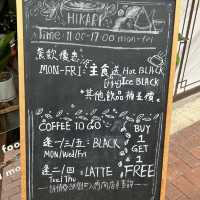 HIKARI
Time: 11:00-17:00 mon-fri
餐飲優惠
MON-FRI: 主食送 Hot BLACK
Ice BLACK
*其他飲品補差價*
COFFEE TO GO
逢一/三/五: BLACK
MON/Wed/Fri
逢二/四: LATTE
Tue/Thu
BUY
1
GET
1
FREE